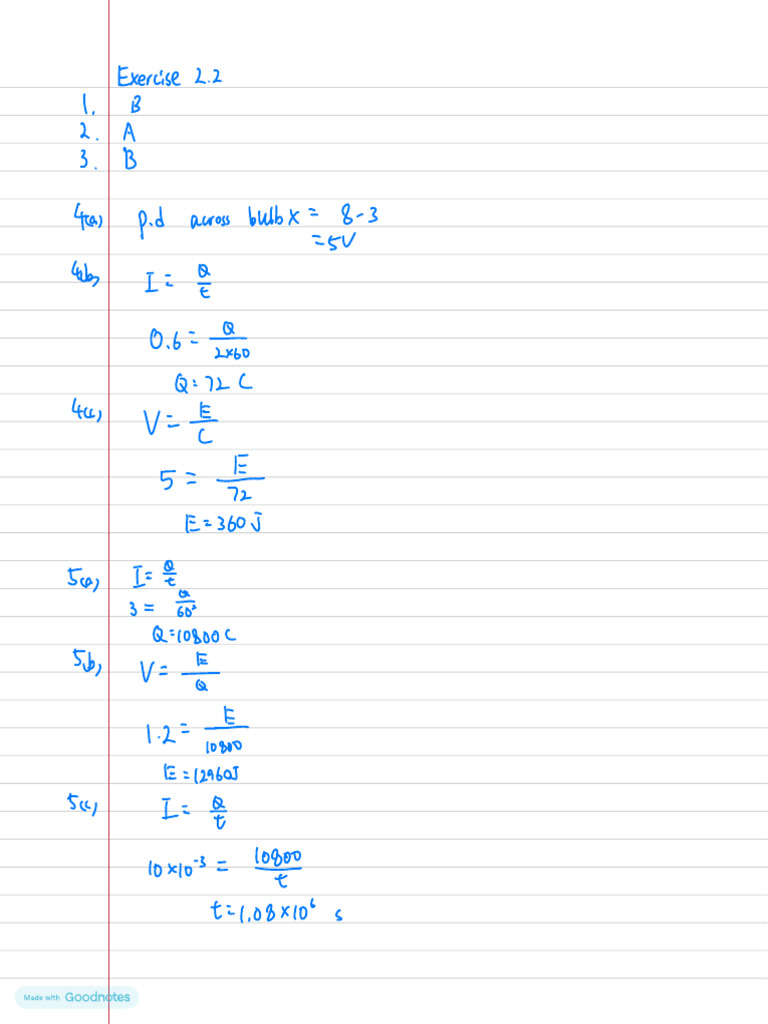 Exercise 2.2
1. B
2. A
3. B
4(a) p.d across bulb X = 8-3
=5V
4(b) I = Q/t
0.6 = Q/2×60
Q = 72 C
4(c) V = E/C
5 = E/72
E = 360 J
5(a) I = Q/t
3 = Q/60²
Q = 10800 C
5(b) V = E/Q
1.2 = E/10800
E = 12960J
5(c) I = Q/t
10×10⁻³ = 10800/t
t = 1.08×10⁶ s
Made with Goodnotes